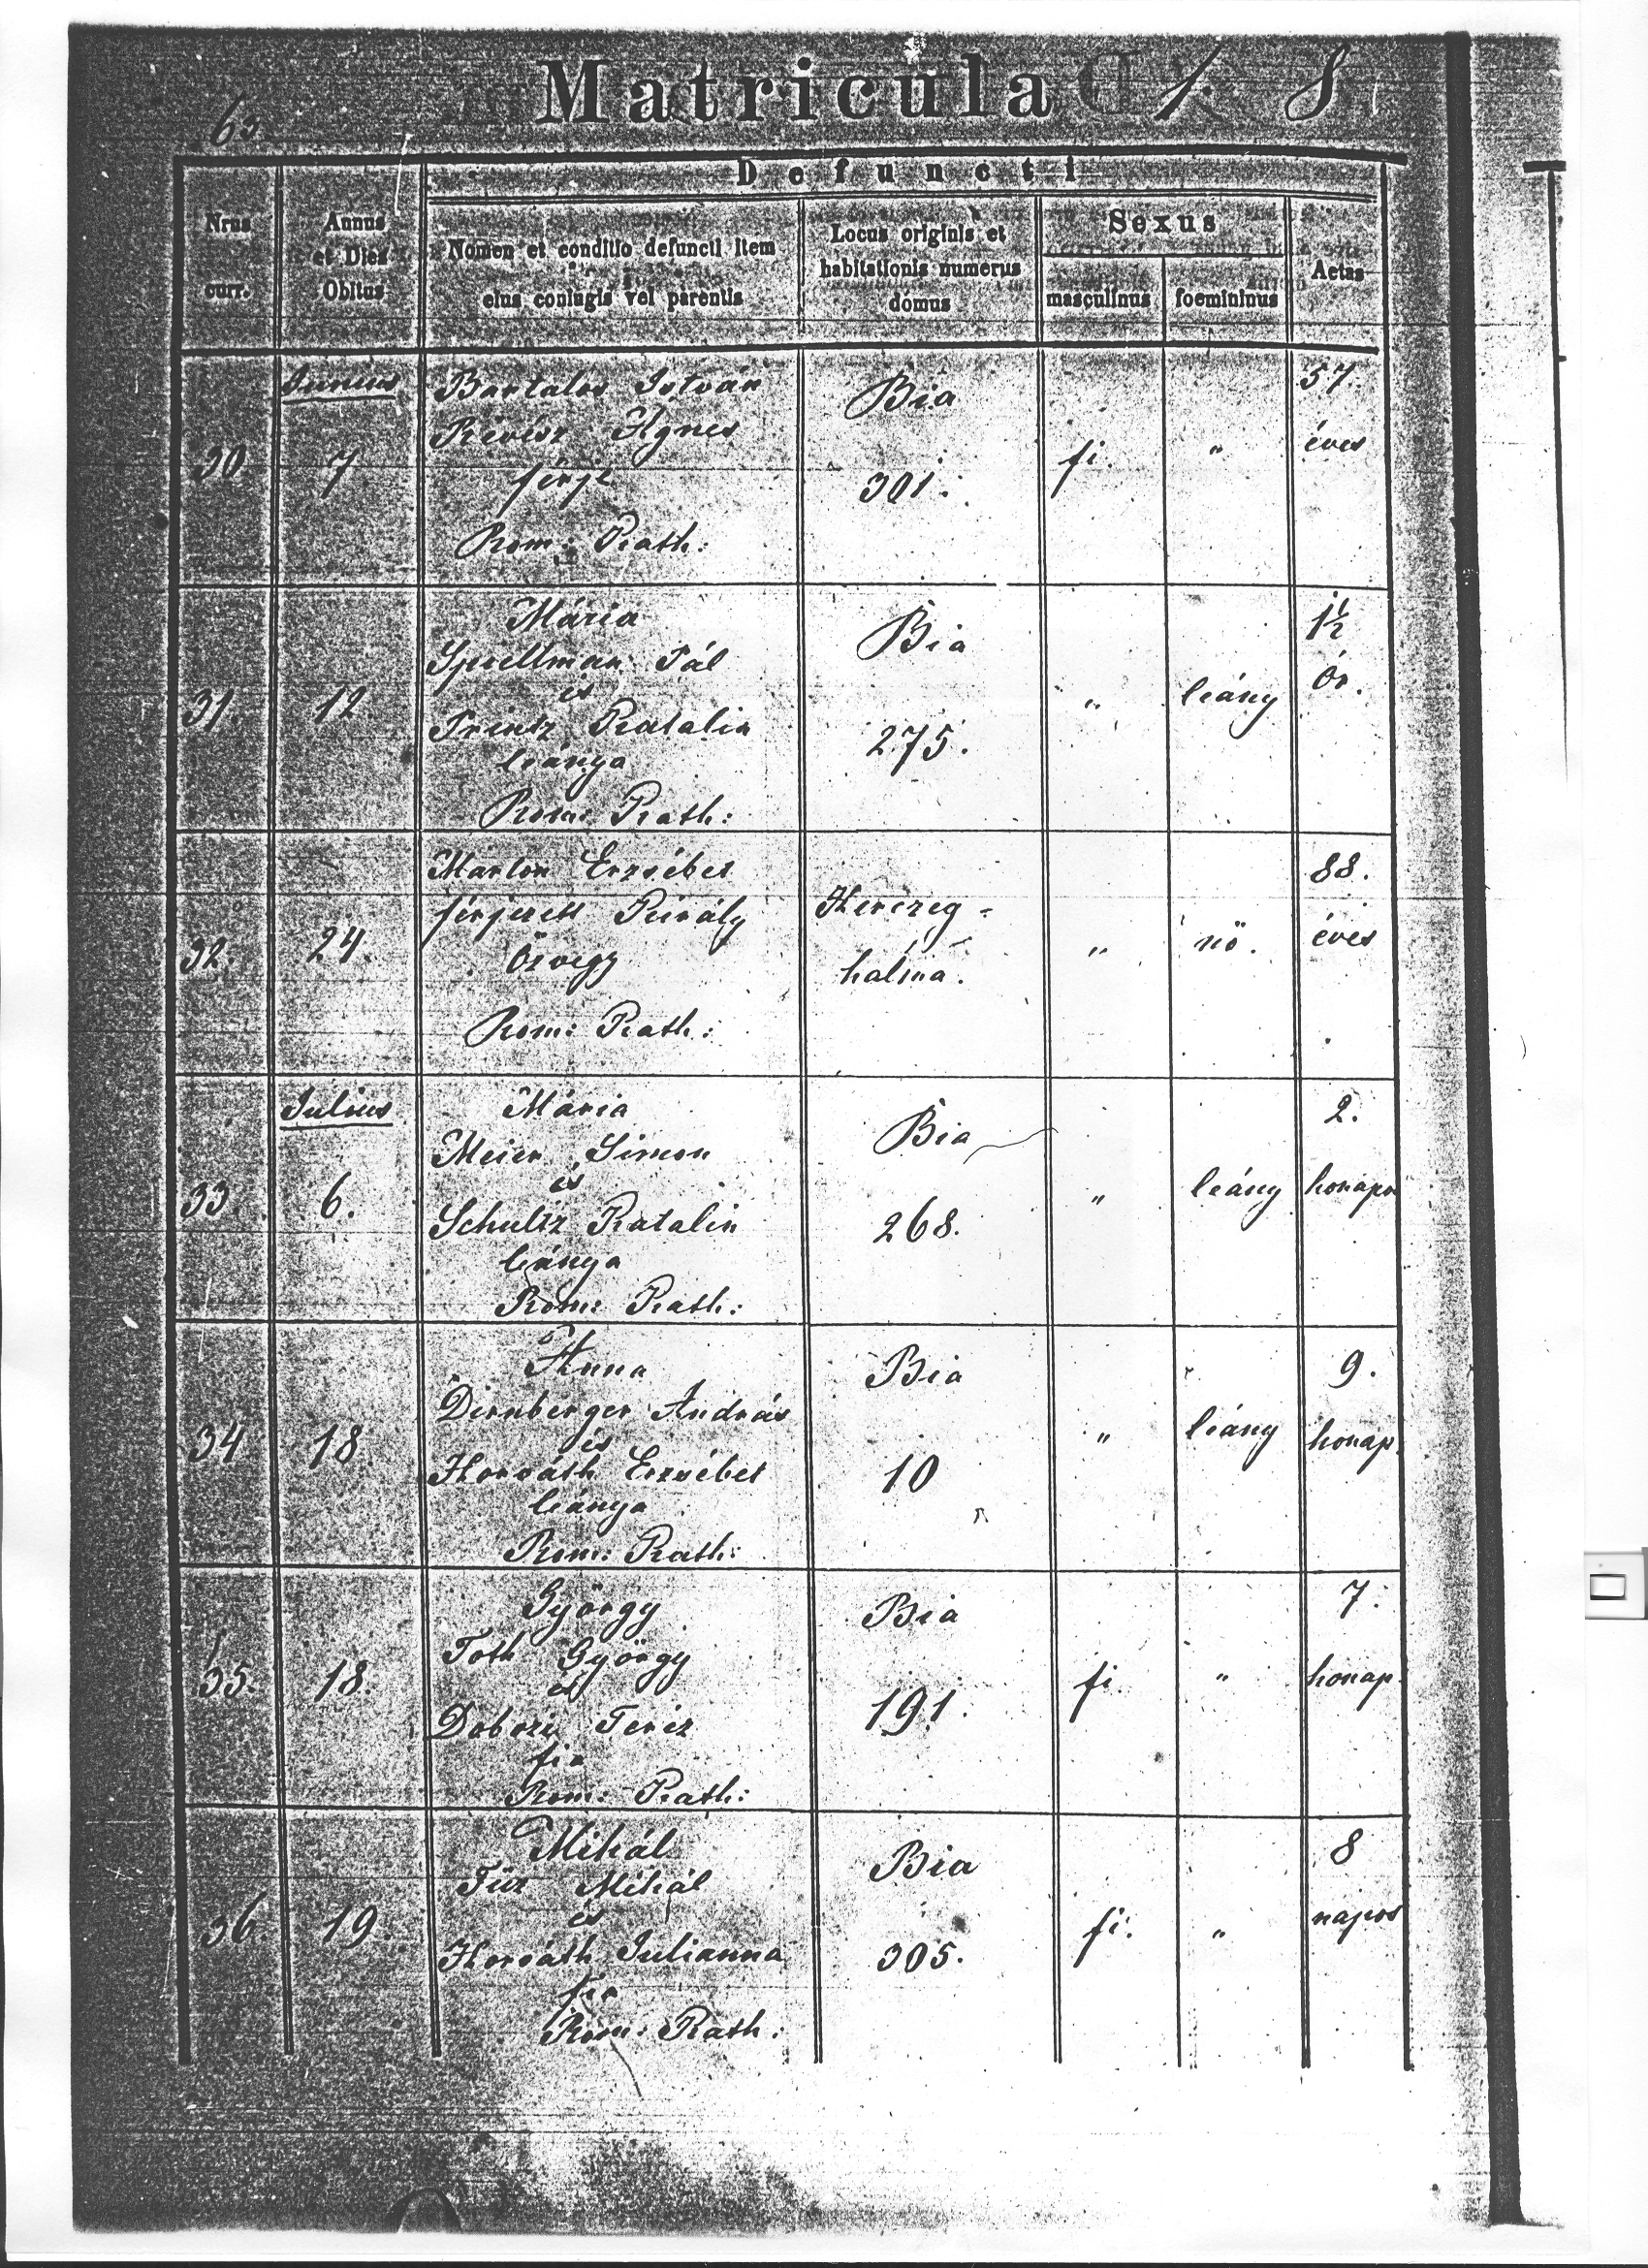 Matricula
Defuncti
Nrus curr.
Annus et Dies Obitus
Nomen et conditio defuncti item eius coniugis vel parentis
Locus originis et habitationis numerus domus
Sexus
masculinus
foemininus
Aetas
Junius
30
7
Bartalos István
Révész Ágnes
férje
Rom: Kath:
Bia
301.
fi.
"
57.
éves
31.
12
Mária
Spellman Pál
és
Printz Katalin
leánya
Rom: Kath:
Bia
275.
"
leány
1½
ór.
32.
24.
Marton Erzsébet
férjezett Király
Özvegy
Rom: Kath:
Herczeg-
halma.
"
nö.
88.
éves
Julius
33.
6.
Mária
Meier Simon
és
Schultz Katalin
leánya
Rom: Kath:
Bia
268.
"
leány
2.
honapo
34
18.
Anna
Dirnberger András
és
Horváth Erzsébet
leánya
Rom: Kath:
Bia
10
"
leány
9.
honap.
35.
18.
György
Toth György
és
Teréz
fia
Rom: Kath:
Bia
191.
fi.
"
7.
honap.
36.
19.
Mihál
Mihál
és
Horváth Julianna
fia
Rom: Kath:
Bia
305.
fi.
"
8
napos